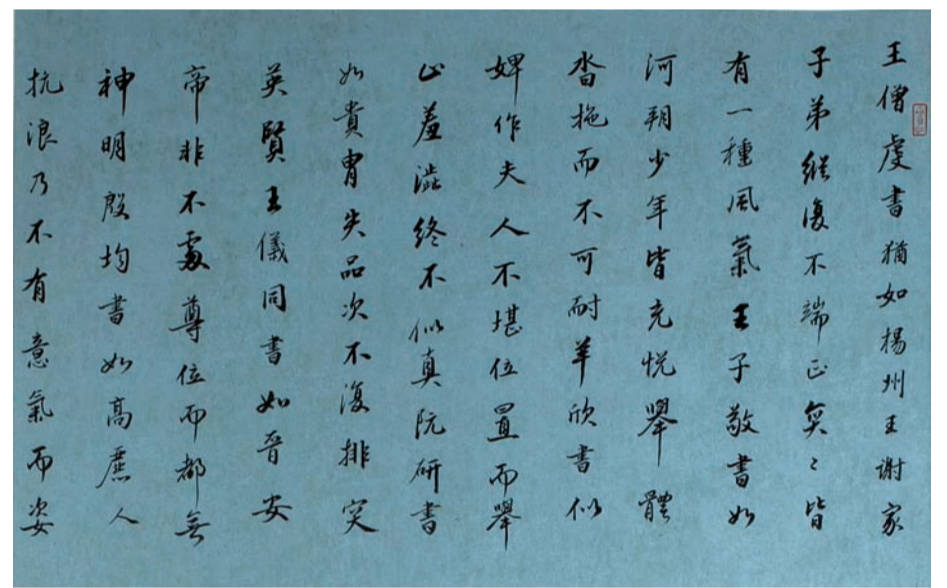 王僧虔書猶如楊州王謝家
子弟縱復不端正奕〻皆
有一種風氣王子敬書如
河朔少年皆充悅舉體
沓拖而不可耐羊欣書似
婢作夫人不堪位置而舉
止羞澀終不似真阮研書
如貴胄失品次不復排突
英賢王儀同書如晉安
帝非不處尊位而都無
神明殷均書如高麗人
抗浪乃不有意氣而姿